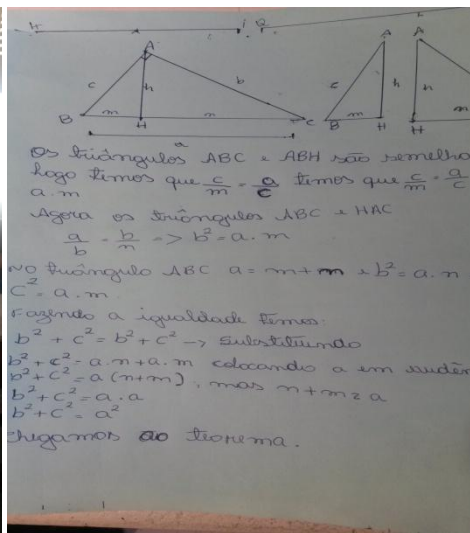 A
c
b
h
B
m
H
n
C
a
A
c
h
B
m
H
A
h
H
m
Os triângulos ABC e ABH são semelha
logo temos que c/m = a/c temos que c/m = a/c
a.m
Agora os triângulos ABC e HAC
a/b = b/n => b² = a.n
No triângulo ABC a = m+n e b² = a.n
c² = a.m
Fazendo a igualdade temos:
b² + c² = b² + c² -> Substituindo
b² + c² = a.n + a.m colocando a em evidên
b² + c² = a(n+m), mas n+m = a
b² + c² = a.a
b² + c² = a²
chegamos ao teorema.